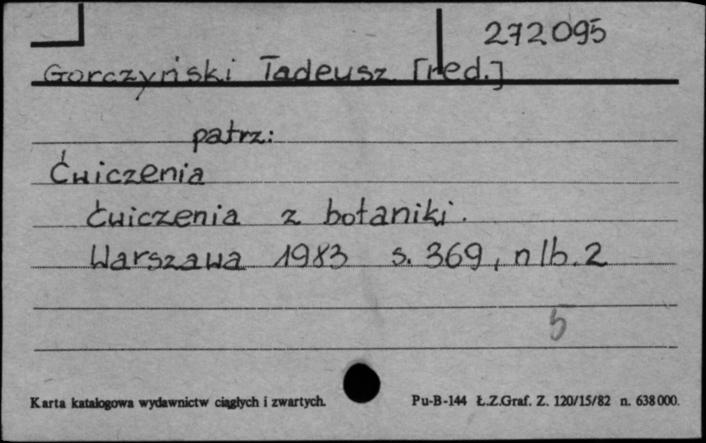 272095
Gorczyński Tadeusz [red.]
patrz:
Ćwiczenia
Ćwiczenia z botaniki.
Warszawa 1983 s. 369, nlb. 2
5
Karta katalogowa wydawnictw ciągłych i zwartych.
Pu-B-144 Ł.Z.Graf. Z. 120/15/82 n. 638 000.